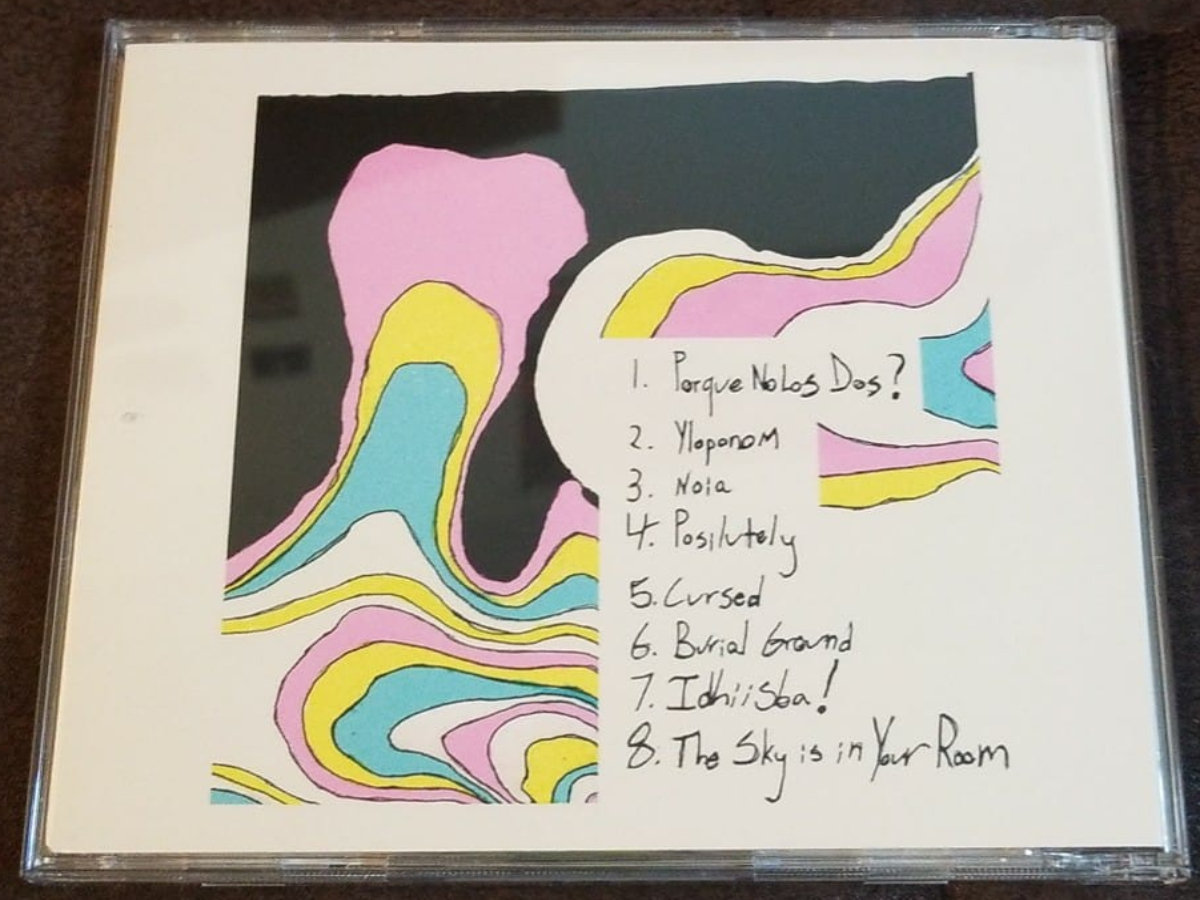 1. Porque No Los Dos?
2. Yloponom
3. Noia
4. Posilutely
5. Cursed
6. Burial Ground
7. Idhiisba!
8. The Sky is in Your Room